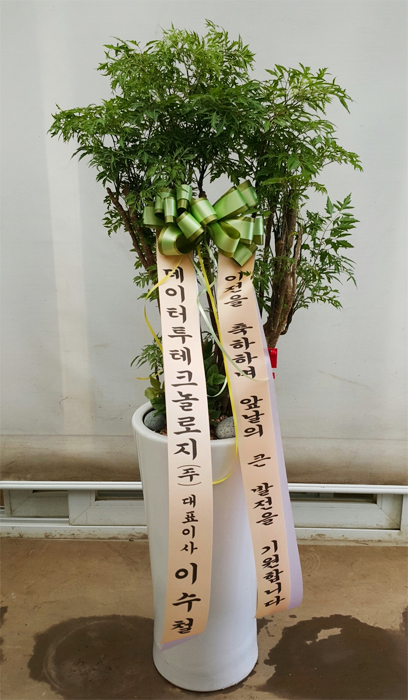 데이터투테크놀로지 (주) 대표이사 이수철
이전을 축하하며 앞날의 큰 발전을 기원합니다